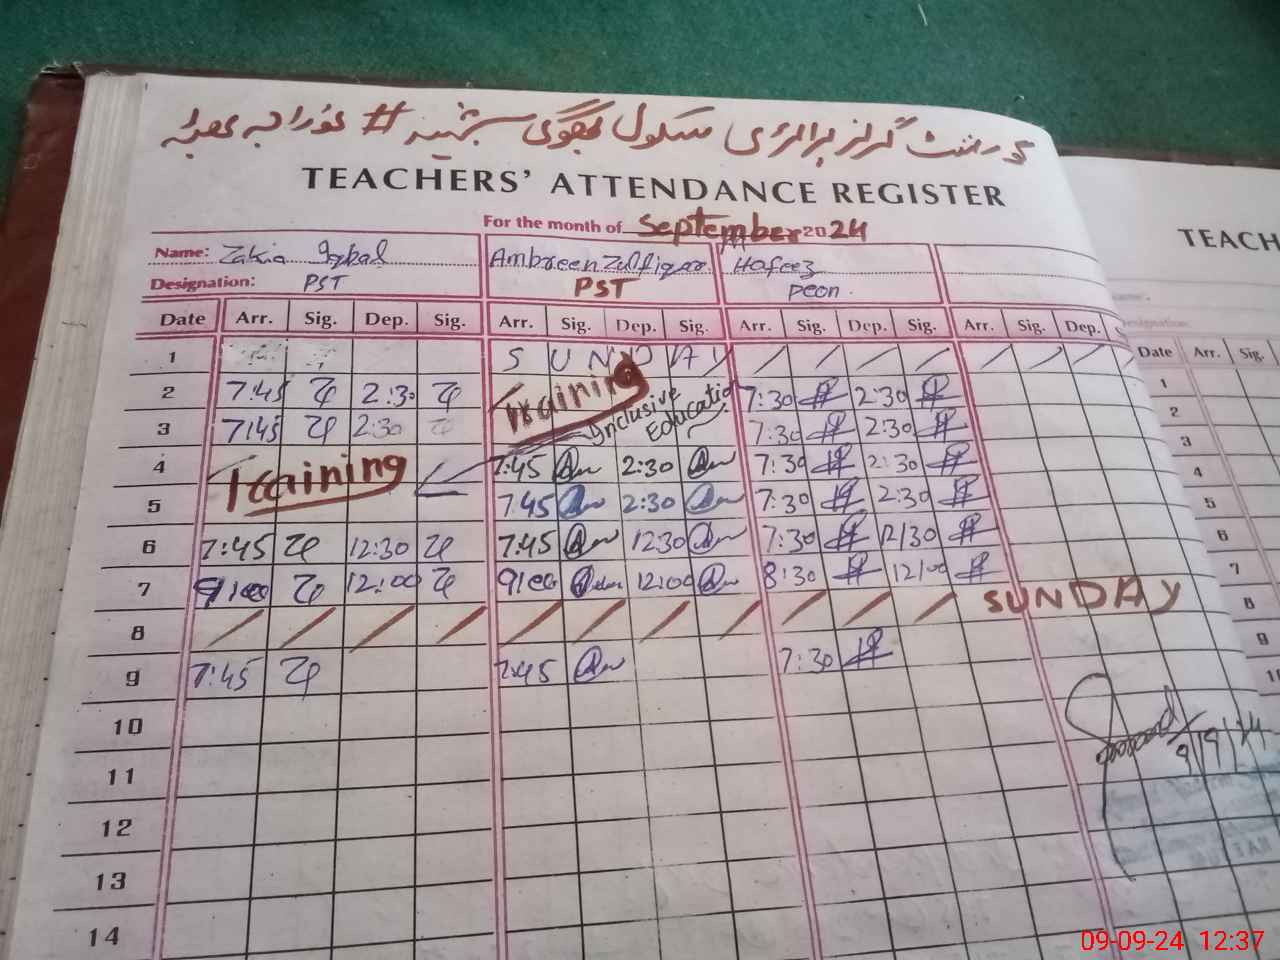 گورنمنٹ گرلز پرائمری سکول بھگوگی
TEACHERS' ATTENDANCE REGISTER
For the month of September 2024
Name: Zakia Iqbal Ambreen Zulfiqar Hafeez
Designation: PST PST Peon.
Date Arr. Sig. Dep. Sig. Arr. Sig. Dep. Sig. Arr. Sig. Dep. Sig. Arr. Sig. Dep.
1 SUNDAY
2 7:45 2:30 Training 7:30 2:30
3 7:45 2:30 Inclusive Education 7:30 2:30
4 Training 7:45 2:30 7:30 2:30
5 7:45 2:30 7:30 2:30
6 7:45 12:30 7:45 12:30 7:30 12/30
7 9:00 12:00 9:00 12:00 8:30 12/00
8 SUNDAY
9 7:45 7:45 7:30
10
11
12
13
14
9/9/24
TEACH
Designation:
Date Arr. Sig.
1
2
3
4
5
6
7
8
9
10
09-09-24 12:37